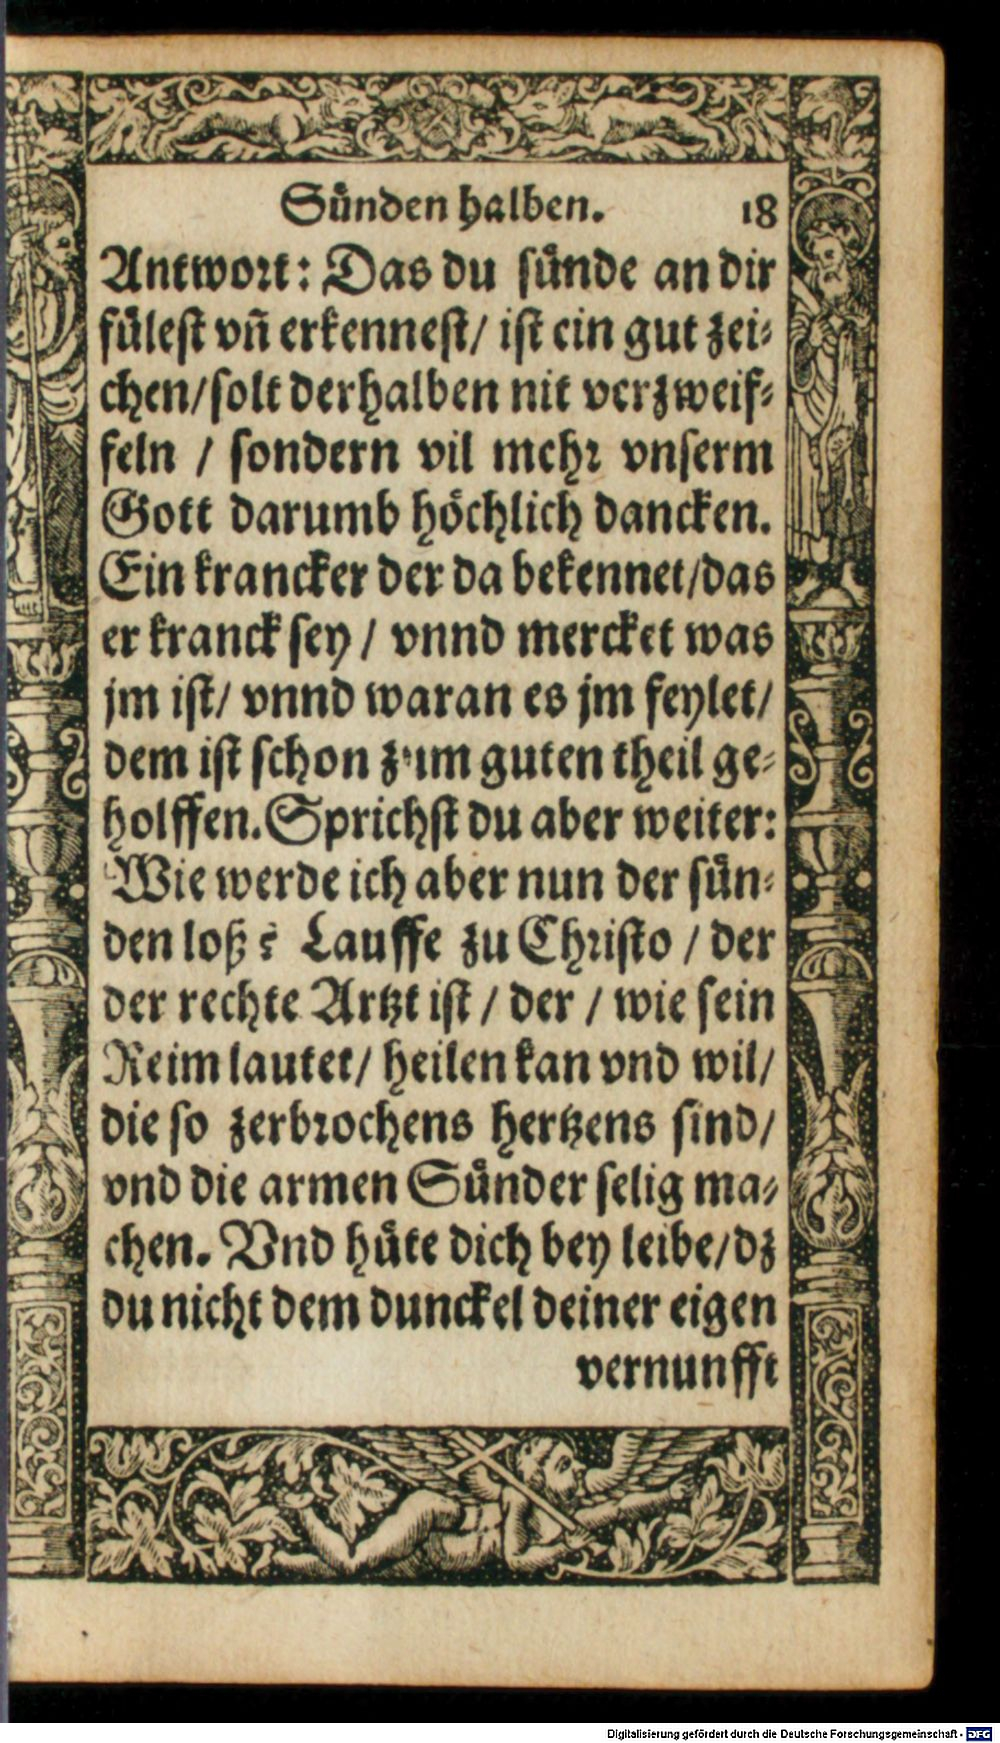 Suͤnden halben. 18
Antwort: Das du suͤnde an dir
fuͤlest vñ erkennest/ ist ein gut zei-
chen/ solt derhalben nit verzweif-
feln / sondern vil mehr vnserm
Gott darumb hoͤchlich dancken.
Ein krancker der da bekennet/ das
er kranck sey / vnnd mercket was
jm ist/ vnnd waran es jm feylet/
dem ist schon zum guten theil ge-
holffen. Sprichst du aber weiter:
Wie werde ich aber nun der suͤn-
den loß? Lauffe zu Christo / der
der rechte Artzt ist / der / wie sein
Reim lautet/ heilen kan vnd wil/
die so zerbrochens hertzens sind/
vnd die armen Suͤnder selig ma-
chen. Vnd huͤte dich bey leibe/ dz
du nicht dem dunckel deiner eigen
vernunfft
Digitalisierung gefördert durch die Deutsche Forschungsgemeinschaft - DFG